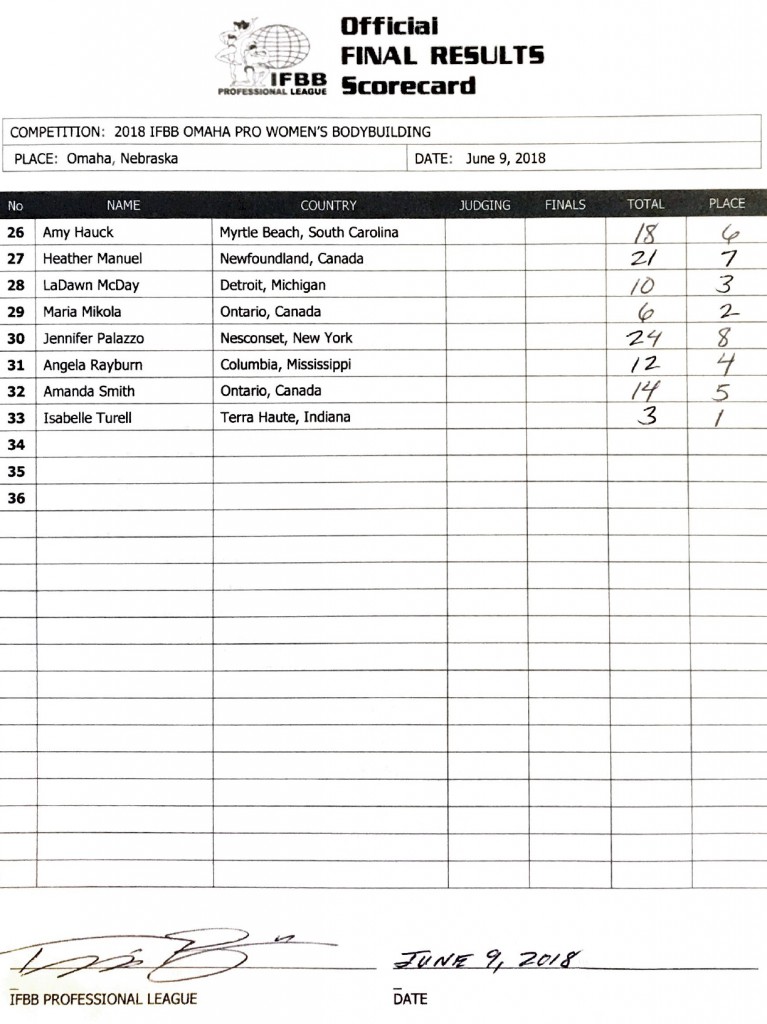 Official
FINAL RESULTS
Scorecard
IFBB
PROFESSIONAL LEAGUE
COMPETITION: 2018 IFBB OMAHA PRO WOMEN'S BODYBUILDING
PLACE: Omaha, Nebraska DATE: June 9, 2018
No NAME COUNTRY JUDGING FINALS TOTAL PLACE
26 Amy Hauck Myrtle Beach, South Carolina 18 6
27 Heather Manuel Newfoundland, Canada 21 7
28 LaDawn McDay Detroit, Michigan 10 3
29 Maria Mikola Ontario, Canada 6 2
30 Jennifer Palazzo Nesconset, New York 24 8
31 Angela Rayburn Columbia, Mississippi 12 4
32 Amanda Smith Ontario, Canada 14 5
33 Isabelle Turell Terra Haute, Indiana 3 1
34
35
36
JUNE 9, 2018
IFBB PROFESSIONAL LEAGUE DATE